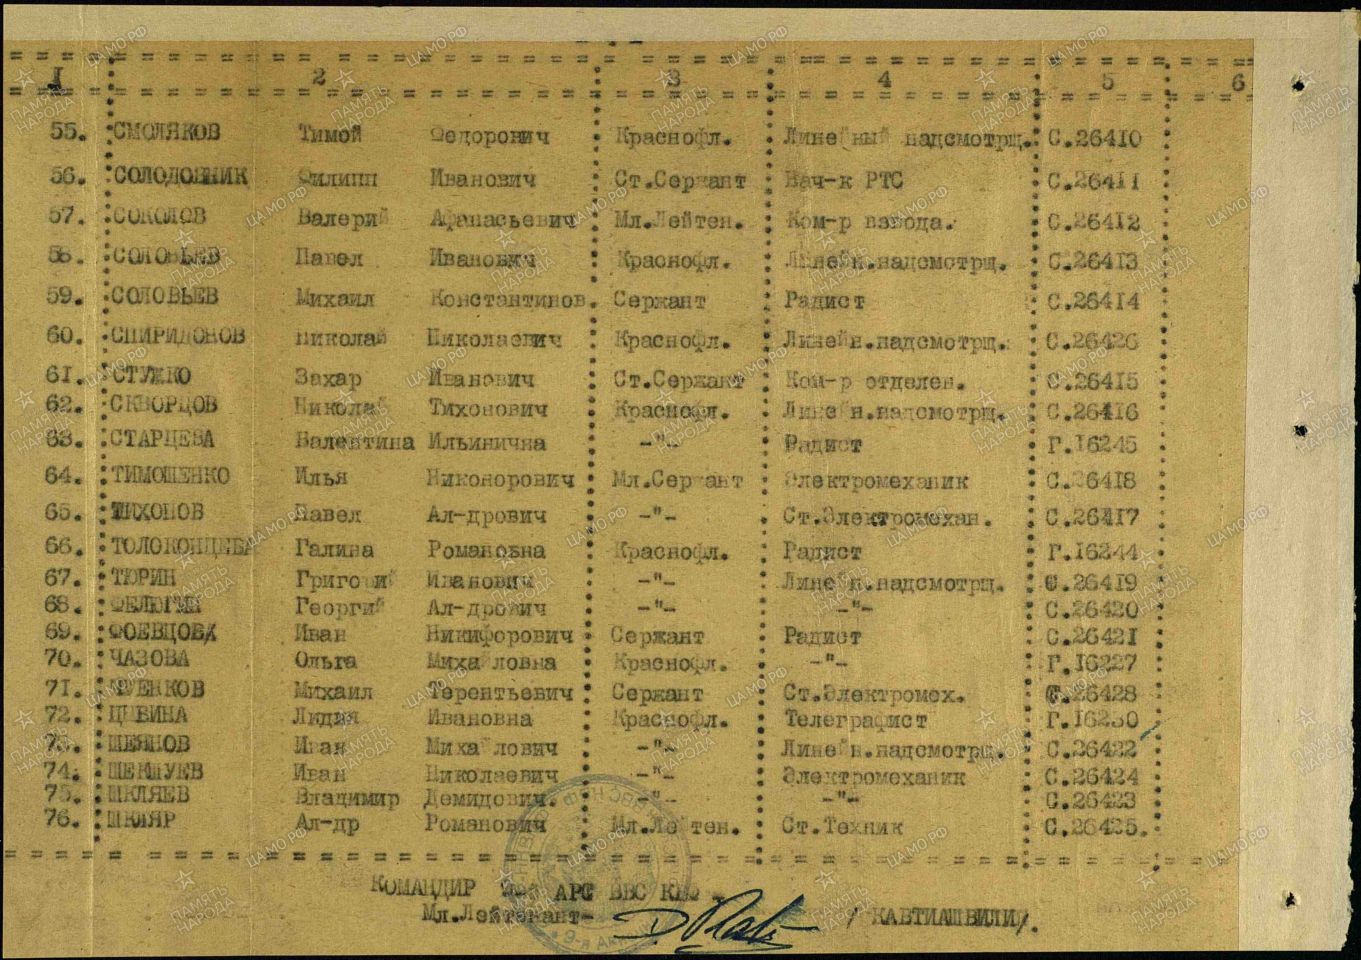 1 2 3 4 5 6
55. СМОЛЯКОВ Тимой Федорович Краснофл. Линейный надсмотрщ. С.26410
56. СОЛОДОВНИК Филипп Иванович Ст.Сержант Нач-к РТС С.26411
57. СОКОЛОВ Валерий Афанасьевич Мл.Лейтен. Ком-р взвода. С.26412
58. СОЛОВЬЕВ Павел Иванович Краснофл. Линейн.надсмотрщ. С.26413
59. СОЛОВЬЕВ Михаил Константинов. Сержант Радист С.26414
60. СПИРИДОНОВ Николай Николаевич Краснофл. Линейн.надсмотрщ. С.26426
61. СТУЖКО Захар Иванович Ст.Сержант Ком-р отделен. С.26415
62. СКВОРЦОВ Николай Тихонович Краснофл. Линейн.надсмотрщ. С.26416
63. СТАРЦЕВА Валентина Ильинична -"- Радист Г.16245
64. ТИМОШЕНКО Илья Никонорович Мл.Сержант Электромеханик С.26418
65. ТИХОНОВ Павел Ал-дрович -"- Ст.Электромехан. С.26417
66. ТОЛОКОНЦЕВА Галина Романовна Краснофл. Радист Г.16244
67. ТЮРИН Григорий Иванович -"- Линейн.надсмотрщ. С.26419
68. Георгий Ал-дрович -"- -"- С.26420
69. ФОЕВЦОВ Иван Никифорович Сержант Радист С.26421
70. ЧАЗОВА Ольга Михайловна Краснофл. -"- Г.16227
71. Михаил Терентьевич Сержант Ст.Электромех. С.26428
72. ЦЫБИНА Лидия Ивановна Краснофл. Телеграфист Г.16230
73. Иван Михайлович -"- Линейн.надсмотрщ. С.26422
74. ШЕКШУЕВ Иван Николаевич -"- Электромеханик С.26424
75. ШКЛЯЕВ Владимир Демидович. -"- -"- С.26423
76. ШКЛЯР Ал-др Романович Мл.Лейтен. Ст.Техник С.26425.
КОМАНДИР АРС ВВС КБФ -
Мл.Лейтенант- / КАВТИАШВИЛИ/.